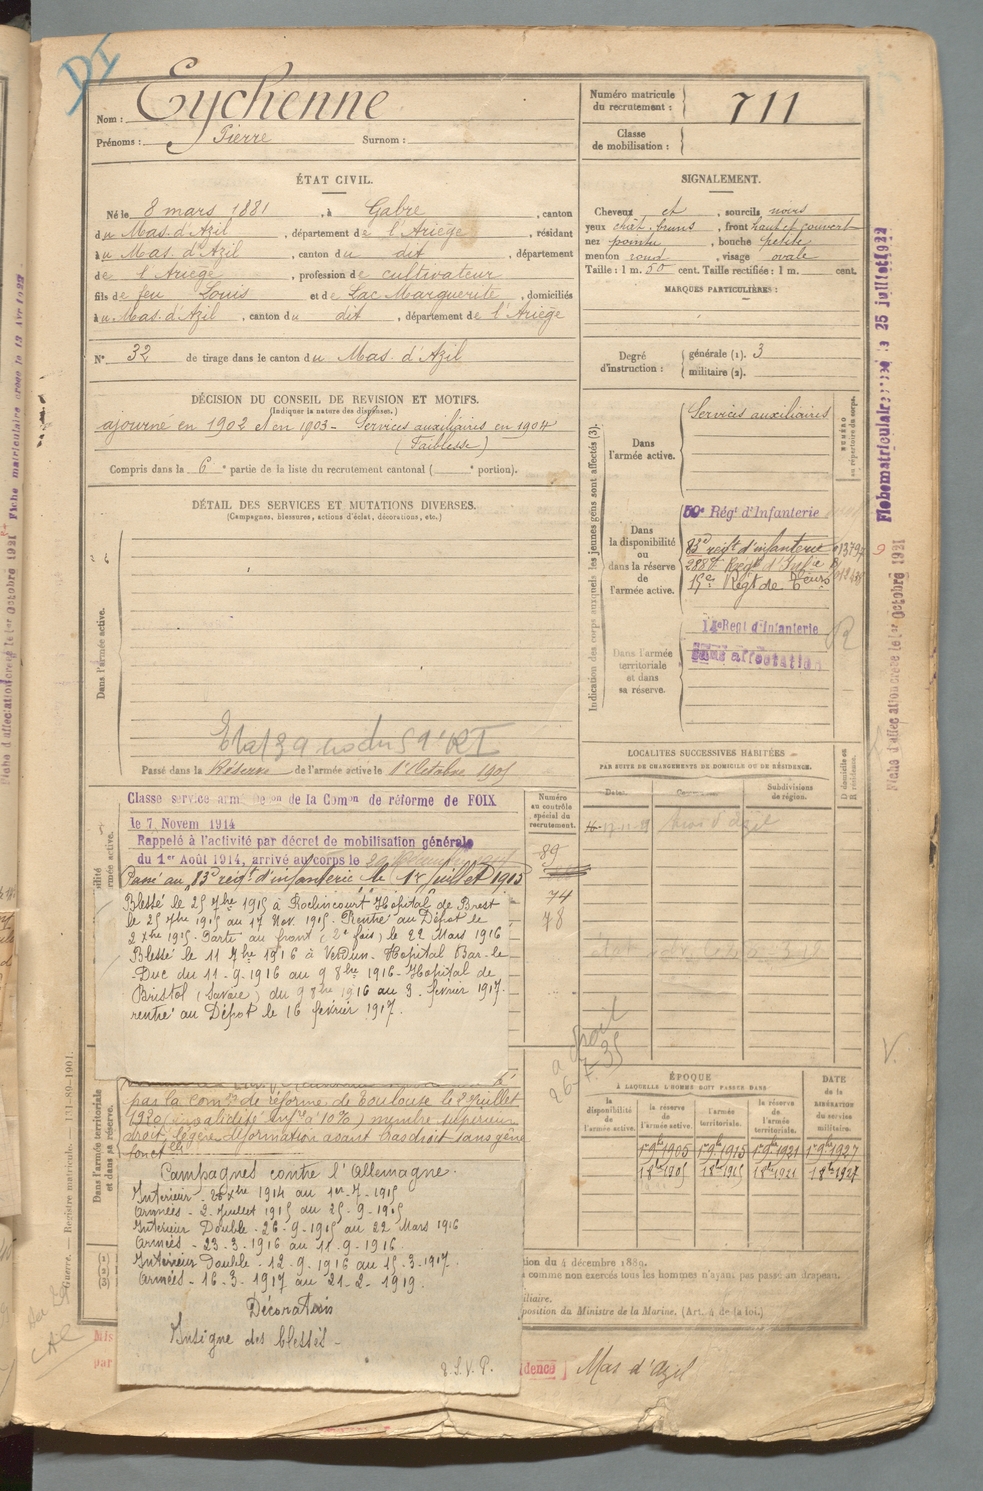 DI
Nom : Eychenne
Prénoms : Pierre Surnom :
Numéro matricule du recrutement : 711
Classe de mobilisation :
ÉTAT CIVIL.
Né le 8 mars 1881, à Gabre, canton
du Mas-d'Azil, département de l'Ariège, résidant
à u Mas-d'Azil, canton du dit, département
de l'Ariège, profession de cultivateur
fils de feu Louis et de Lac Marguerite, domiciliés
à u Mas-d'Azil, canton du dit, département de l'Ariège
N° 32 de tirage dans le canton du Mas-d'Azil
SIGNALEMENT.
Cheveux et, sourcils noirs
yeux chât. bruns, front haut et couvert
nez pointu, bouche petite
menton rond, visage ovale
Taille : 1 m. 50 cent. Taille rectifiée : 1 m. cent.
MARQUES PARTICULIÈRES :
Degré d'instruction : générale (1). 3
militaire (2).
DÉCISION DU CONSEIL DE REVISION ET MOTIFS.
(Indiquer la nature des dispenses.)
ajourné en 1902 et en 1903 - Services auxiliaires en 1904
(Faiblesse)
Compris dans la 6e partie de la liste du recrutement cantonal ( e portion).
DÉTAIL DES SERVICES ET MUTATIONS DIVERSES.
(Campagnes, blessures, actions d'éclat, décorations, etc.)
Dans l'armée active.
Passé dans la Réserve de l'armée active le 1er Octobre 1905
Indication des corps auxquels les jeunes gens sont affectés (3).
NUMÉRO au répertoire du corps.
Dans l'armée active.
Services auxiliaires
Dans la disponibilité ou dans la réserve de l'armée active.
59e Régt d'Infanterie
83e régt d'infanterie
Dans l'armée territoriale et dans sa réserve.
Regt d'Infanterie
affectation
LOCALITÉS SUCCESSIVES HABITÉES
PAR SUITE DE CHANGEMENTS DE DOMICILE OU DE RÉSIDENCE.
Subdivisions de région.
D domicile ou R résidence.
Classe service armé de la Comon de réforme de FOIX
le 7 Novem 1914
Rappelé à l'activité par décret de mobilisation générale
du 1er Août 1914, arrivé au corps le
Passé au 83e régt d'infanterie le 1er juillet 1915
Blessé le 25 7bre 1915 à Roclincourt Hôpital de Brest
le 25 7bre 1915 au 17 Nov 1915. Rentré au Dépôt le
2 Xbre 1915. Parti au front (2e fois) le 22 Mars 1916
Blessé le 11 7bre 1916 à Verdun. Hopital Bar-le-
Duc du 11-9-1916 au 9 8bre 1916- Hôpital de
Bristol (Savoie) du 9 8bre 1916 au 3 février 1917.
rentré au Dépôt le 16 février 1917.
Numéro au contrôle spécial du recrutement.
89
74
78
Dans l'armée territoriale et dans sa réserve.
par la comon de réforme de Toulouse le 2 Juillet
1920 (invalidité infre à 10%) membre supérieur
droit, légère déformation avant bras droit sans gêne
fonctelle
Campagnes contre l'Allemagne.
Intérieur - Xbre 1914 au 1er-7-1915
Armées - 2 Juillet 1915 au 25-9-1915
Intérieur Double - 26-9-1915 au 22 Mars 1916
Armées - 23-3-1916 au 11-9-1916
Intérieur Double - 12-9-1916 au 15-3-1917.
Armées - 16-3-1917 au 21-2-1919.
Décoration
Insigne des blessés -
T.S.V.P.
ÉPOQUE
À LAQUELLE L'HOMME DOIT PASSER DANS
la disponibilité de l'armée active.
la réserve de l'armée active.
l'armée territoriale.
la réserve de l'armée territoriale.
DATE de la LIBÉRATION du service militaire.
1er 8bre 1905 1er 8bre 1915 1er 8bre 1921 1er 8bre 1927
tion du 4 décembre 1889.
comme non exercés tous les hommes n'ayant pas passé au drapeau.
iliaire.
position du Ministre de la Marine. (Art. 4 de la loi.)
dence] Mas d'Azil
Guerre. — Registre matricule. — 131-89-1901.
Fiche matriculaire 25 juillet 1922
Fiche d'affectation créée le 1er Octobre 1921